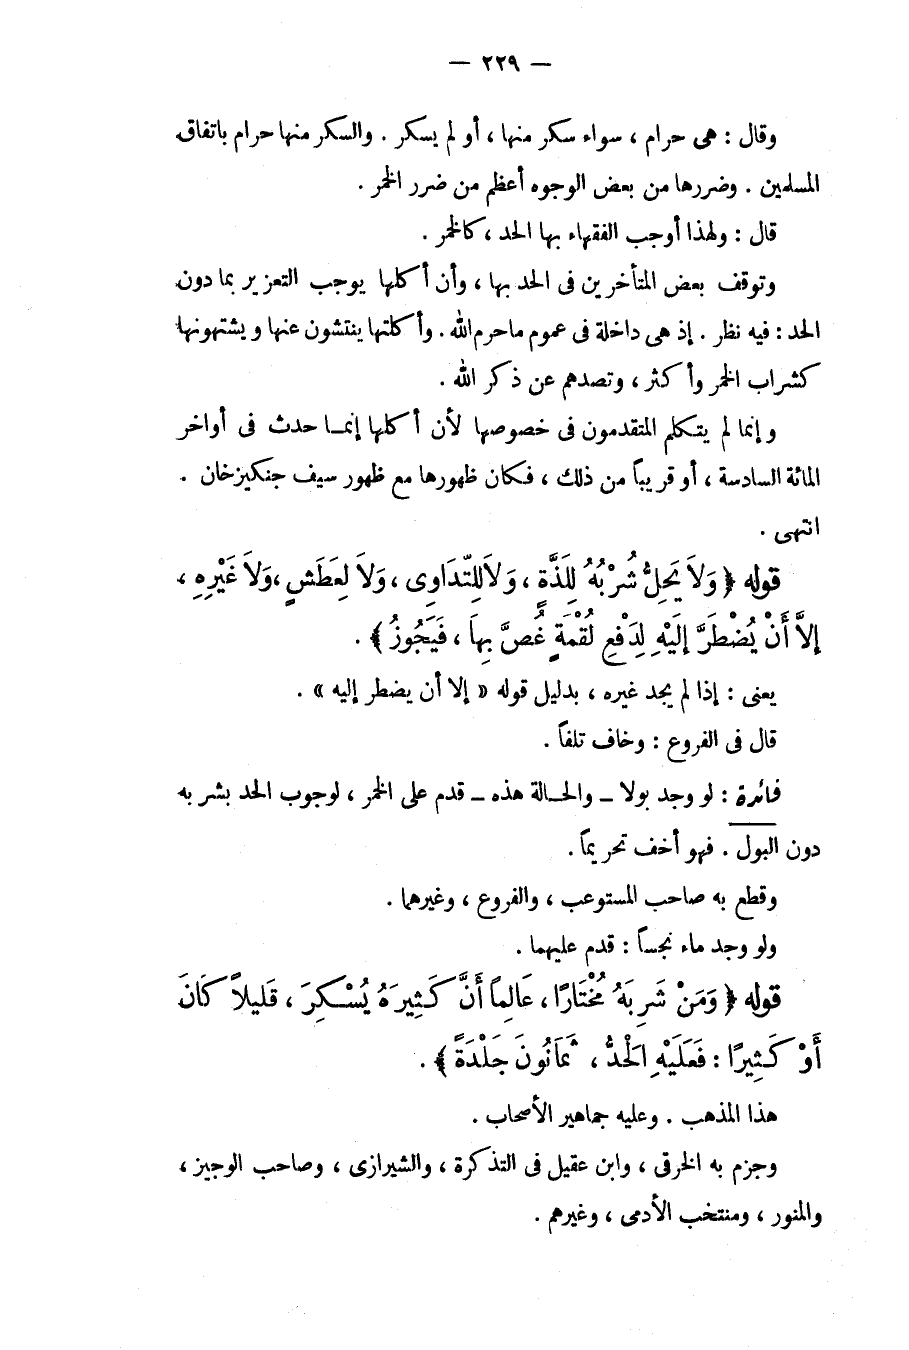 — ٢٢٩ —
وقال : هى حرام ، سواء سكر منها ، أو لم يسكر . والسكر منها حرام باتفاق
المسلمين . وضررها من بعض الوجوه أعظم من ضرر الخمر .
قال : ولهذا أوجب الفقهاء بها الحد ، كالخمر .
وتوقف بعض المتأخرين فى الحد بها ، وأن أكلها يوجب التعزير بما دون
الحد : فيه نظر . إذ هى داخلة فى عموم ماحرم الله . وأكلتها ينتشون عنها ويشتهونها
كشراب الخمر وأكثر ، وتصدهم عن ذكر الله .
وإنما لم يتكلم المتقدمون فى خصوصها لأن أكلها إنما حدث فى أواخر
المائة السادسة ، أو قريباً من ذلك ، فكان ظهورها مع ظهور سيف جنكيزخان .
انتهى .
قوله ﴿ وَلاَ يَحِلُّ شُرْبُهُ لِلَذَّةٍ ، وَلاَ لِلتَّدَاوِى ، وَلاَ لِعَطَشٍ ، وَلاَ غَيْرِهِ ،
إِلاَّ أَنْ يُضْطَرَّ إِلَيْهِ لِدَفْعِ لُقْمَةٍ غُصَّ بِهَا ، فَيَجُوزُ ﴾ .
يعنى : إذا لم يجد غيره ، بدليل قوله « إلا أن يضطر إليه » .
قال فى الفروع : وخاف تلفاً .
فائدة : لو وجد بولا – والحالة هذه – قدم على الخمر ، لوجوب الحد بشربه
دون البول . فهو أخف تحريماً .
وقطع به صاحب المستوعب ، والفروع ، وغيرهما .
ولو وجد ماء نجساً : قدم عليهما .
قوله ﴿ وَمَنْ شَرِبَهُ مُخْتَارًا ، عَالِماً أَنَّ كَثِيرَهُ يُسْكِرَ ، قَلِيلاً كَانَ
أَوْ كَثِيرًا : فَعَلَيْهِ الَحْدُّ ، ثَمَانُونَ جَلْدَةً ﴾ .
هذا المذهب . وعليه جماهير الأصحاب .
وجزم به الخرقى ، وابن عقيل فى التذكرة ، والشيرازى ، وصاحب الوجيز ،
والمنور ، ومنتخب الأدمى ، وغيرهم .